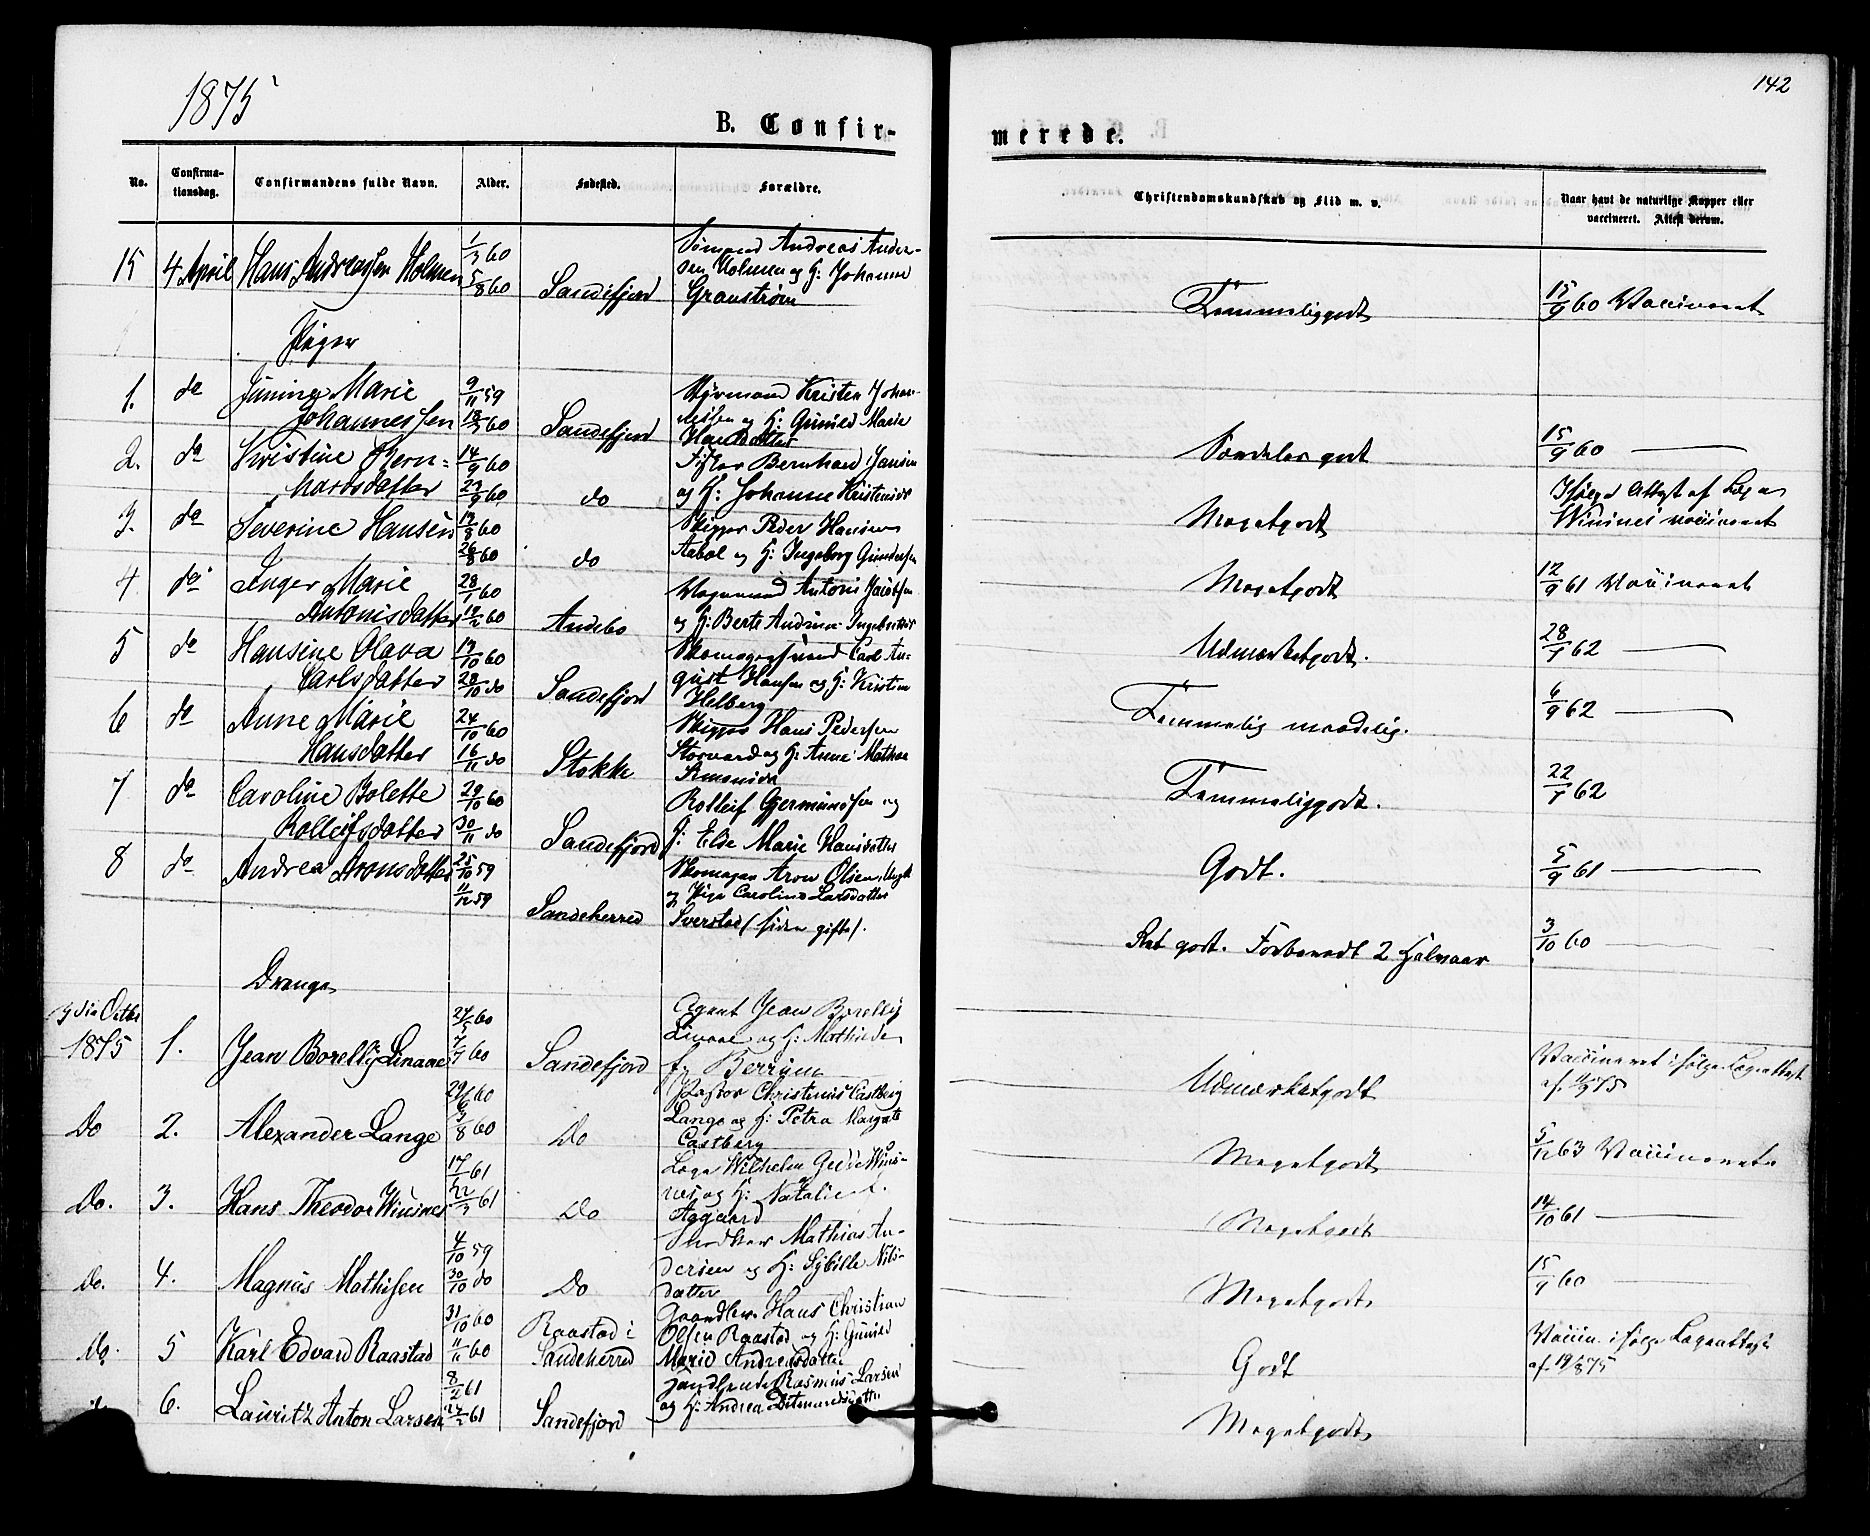 1875
142
B. Confir-
merede.
No.
Confirma-
tionsdag.
Confirmandens fulde Navn.
Alder.
Fødested.
Forældre.
Christendomskundskab og Flid m. v.
Naar havt de naturlige Kopper eller
vaccineret. Attest derom.
15 4 April Hans Andreassen Holmen 1/3 60 5/8 60 Sandefjord
Sømand Andreas Ander-
sen Holmen og H: Johanne
Granstrøm
Temmeliggodt 15/9 60 Vaccineret
Piger
1. do Marie
Johannessen 9/11 59 60 Sandefjord
Styrmand Kristen Johan-
nessen og H: Gunild Marie
Hansdatter
Særdeles godt 15/9 60
2. do Kristine Bern-
hardsdatter 14/9 60 60 do
Bernhard Jansen
og H: Johanne Kristensdr
Megetgodt Ifølge Attest af Læge
Winsnes vaccineret
3. do Severine Hansen 60 26/8 60 do
Skipper Peder Hansen
og H: Ingeborg Gundersen
Megetgodt 12/9 61 Vaccineret
4. do Inger Marie
Antonisdatter 28/1 60 60 Andebo
Vognmand Antonis Jacobsen
og H: Berte Andrine
Udmærketgodt. 28/9 62
5 do Hansine Olava
Carlsdatter 60 28/10 do Sandefjord
Skomagersvend Carl Au-
gust Hansen og H: Kristine
Helberg
Temmelig maadelig. 62
6 do Anne Marie
Hansdatter 24/10 60 16/11 do Stokke
Skipper Hans Pedersen
og H: Anne Mathea
Simonsdr
Temmeliggodt. 22/9 62
7 do Caroline Bolette
Rolleifsdatter 29/10 60 30/11 do Sandefjord
Rolleif Gjermundsen og
H: Else Marie Hansdatter
Godt. 5/9 61
8 do Andrea Aronsdatter 25/10 59 11/12 59 Sandeherred
Skomager Aron Olsen
og Pige Caroline Larsdatter
Sverstad (siden gifte).
Ret godt. Forberedt 2 Halvaar 3/10 60
Drenge
3die Octbr
1875 1. Jean Borelly Linaae 60 60 Sandefjord
Agent Jean Borelly
Linaae og H: Mathilde
f. Berrum
Udmærketgodt Vaccineret ifølge Lægeattest
af 75
Do 2. Alexander Lange 29/6 60 3/8 60 Do
Pastor Christenius Castberg
Lange og H: Petra Margrete
Castberg
Megetgodt 5/12 63 Vaccineret
Do. 3. Hans Theodor Winsnes 17/1 61 22/3 61 Do
Læge Wilhelm Wins-
nes og H: Natalie f.
Aagaard
Megetgodt 14/10 61
Do. 4. Magnus Mathisen 4/10 59 30/10 do Do
Snedker Mathias An-
dersen og H: Sybille Nils-
datter
Megetgodt 15/9 60
Do. 5 Karl Edvard Raastad 31/10 60 11/11 60 Raastad i
Sandeherred
Hans Christian
Olsen Raastad og H: Gunild
Marie Andreasdatter
Godt Vaccin. ifølge Lægeattest
af 19/8 75
6. Lauritz Anton Larsen 8/2 61 61 Sandefjord
Rasmus Larsen
og H: Andrea Ditmandsdatter
Megetgodt